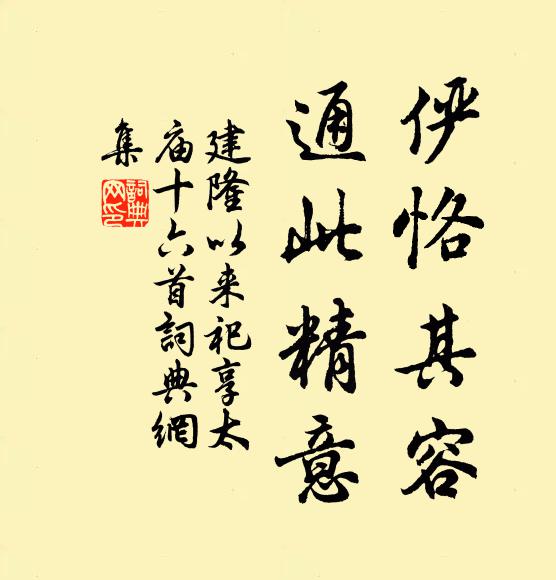 俨恪其容
通此精意
建隆以来祀享太
庙十六首詞典網
集
詞典
网印